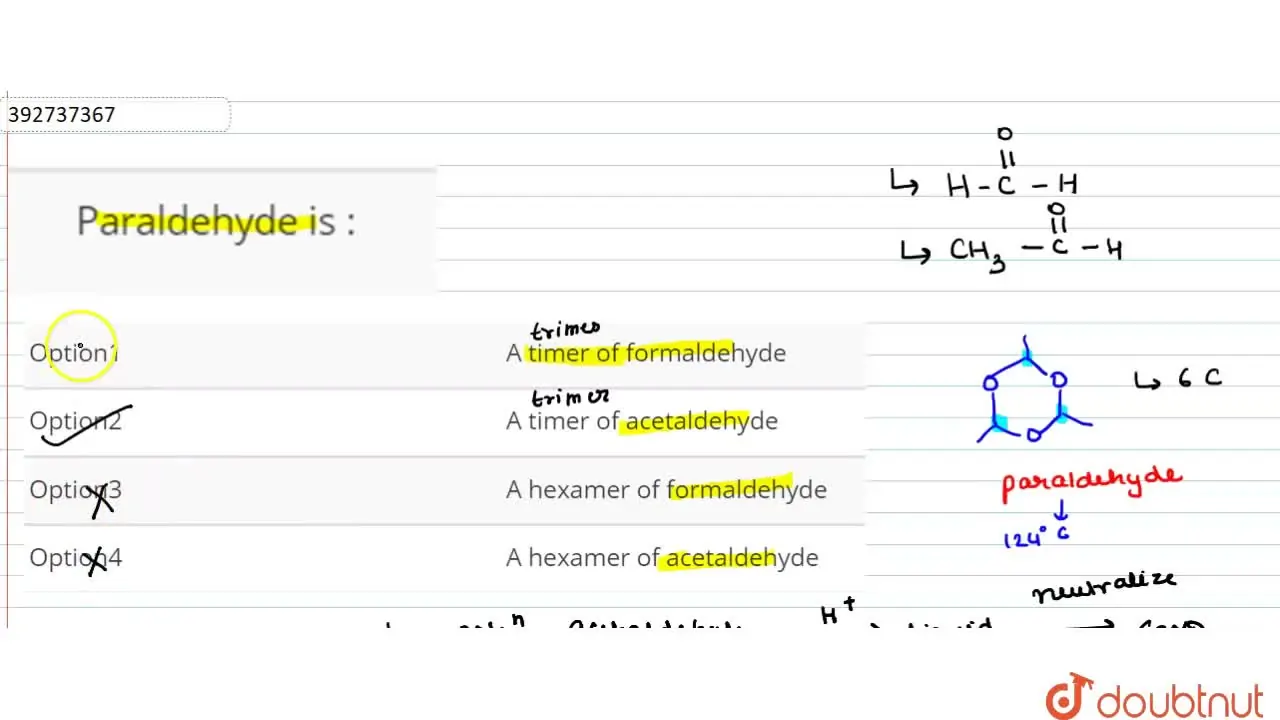 392737367
Paraldehyde is :
O
||
H - C - H
O
||
CH3 - C - H
trimes
Option1 A timer of formaldehyde
trimer
Option2 A timer of acetaldehyde
Option3 A hexamer of formaldehyde
Option4 A hexamer of acetaldehyde
O O
O
6 C
paraldehyde
124° C
neutralize
H+
doubtnut